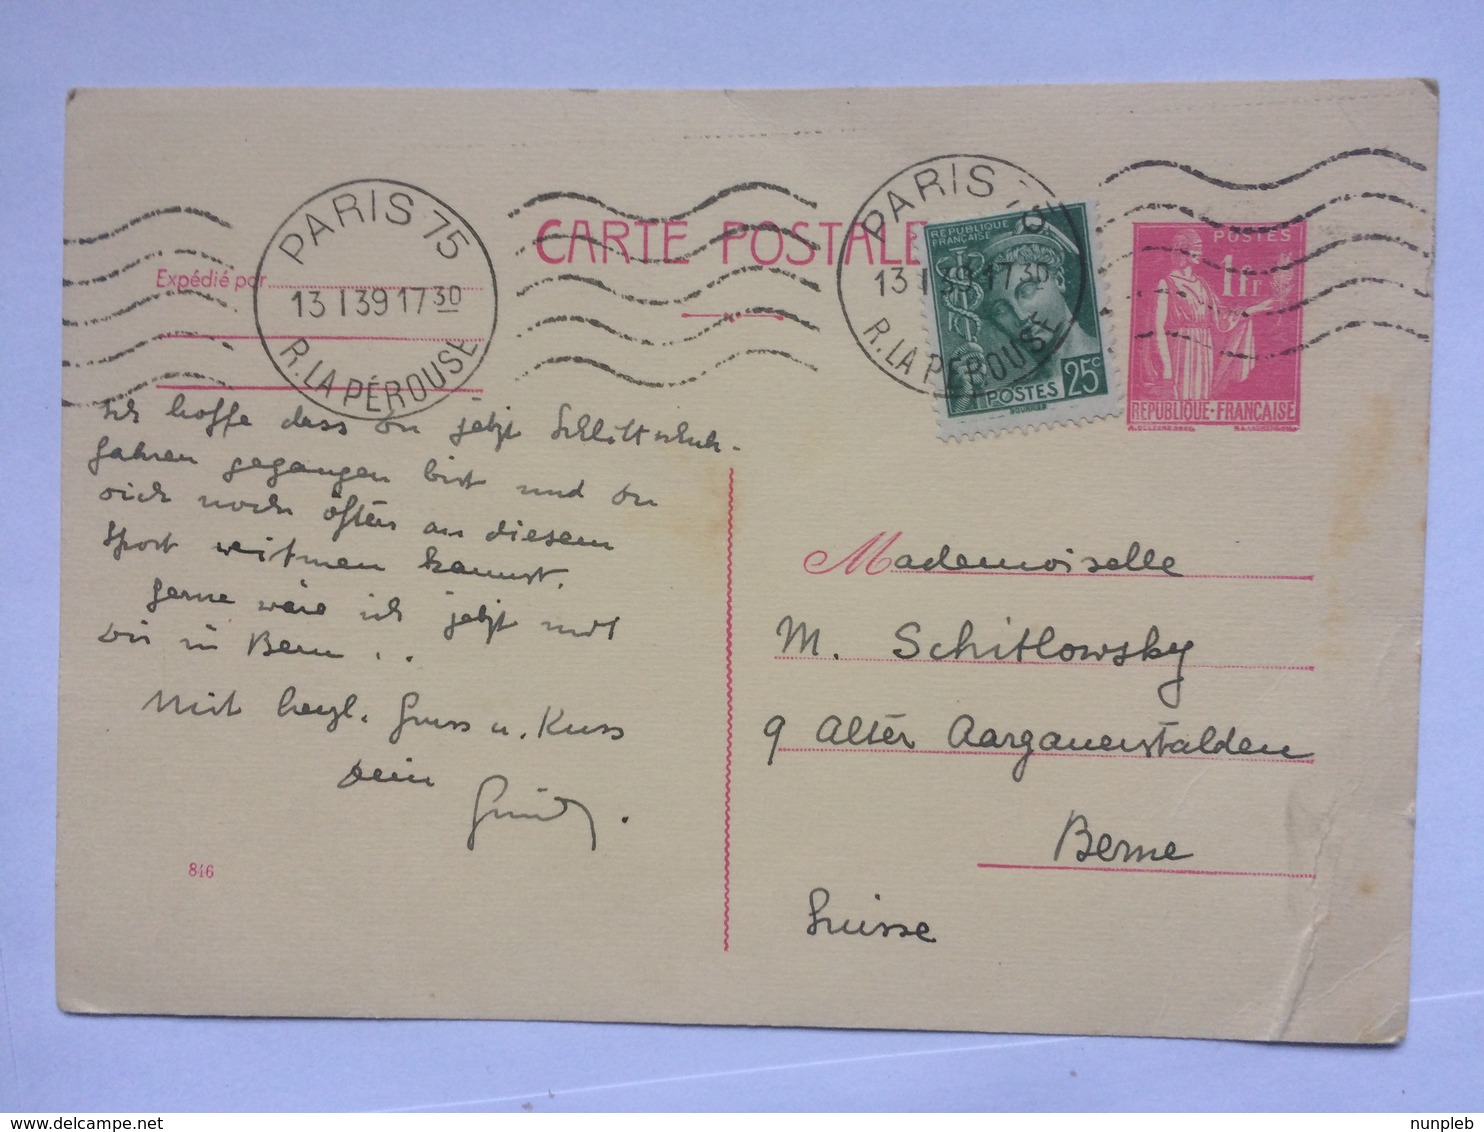 PARIS 75
13 I 39 17 30
R. LA PÉROUSE
PARIS 75
13 I 39 17 30
R. LA PÉROUSE
CARTE POSTALE
Expédié par
REPUBLIQUE
FRANÇAISE
25c
POSTES
POSTES
1fr
REPUBLIQUE·FRANÇAISE
Ich hoffe dass du jetzt Schlittschuh-
fahren gegangen bist und du
dich noch öfters an diesem
Sport witmen kannst.
Gerne wäre ich jetzt mit
dir in Bern . .
Mit herzl. Gruss u. Kuss
Dein
846
Mademoiselle
M. Schitlowsky
9 Alter Aargauerstalden
Berne
Suisse
www.delcampe.net
nunpleb